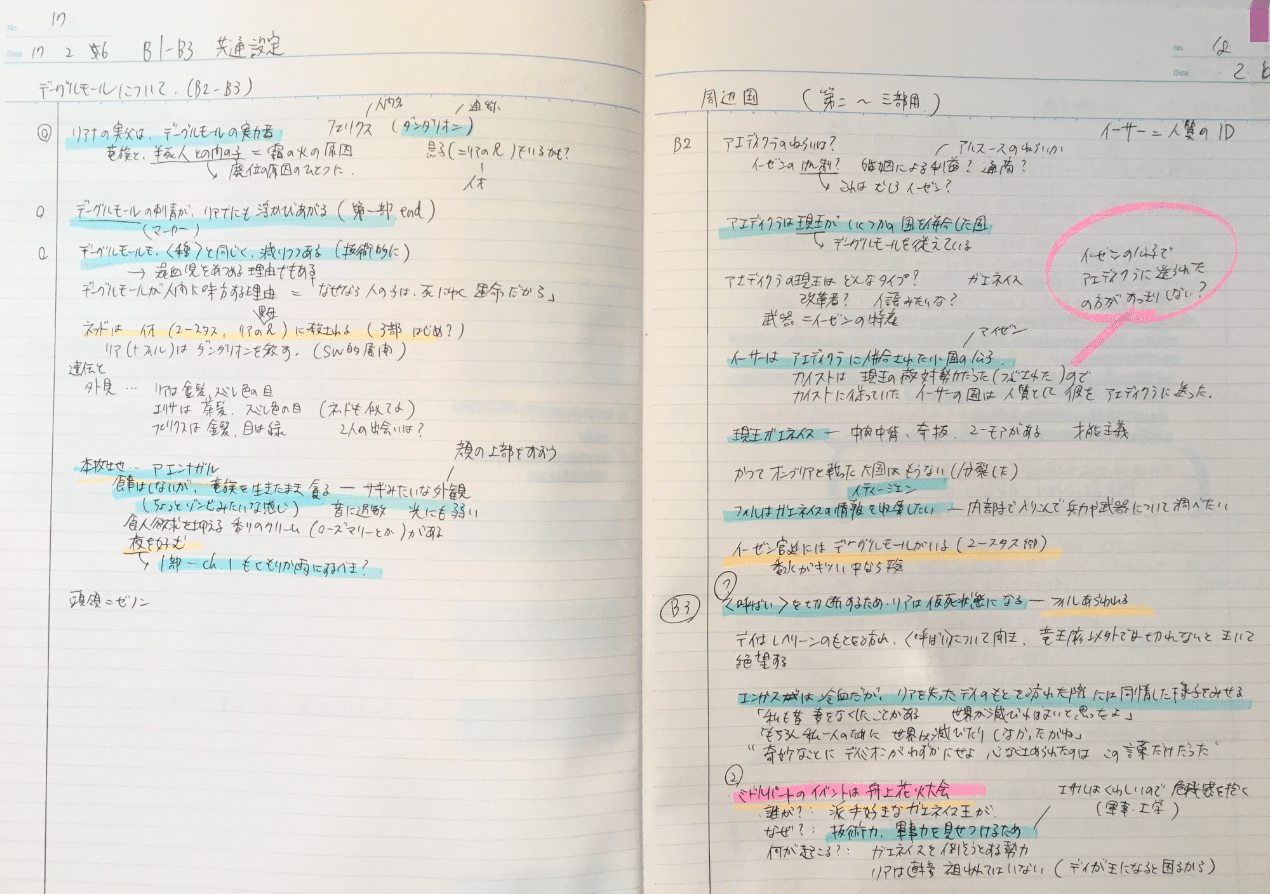 No. 17
Date 17 2 6 B1-B3 共通設定
デーグルモールについて (B2-B3)
人間名 通称
フェリクス (ダンダリオン)
リアナの実父は、デーグルモールの実力者
竜族と、半死人との間の子 = 霜の火の原因
息子(=リアの兄)でいるかも?
イオ
廃位の原因のひとつに.
デーグルモールの刺青が、リアナにも浮かびあがる (第一部 end)
(マーカー)
デーグルモールも、〈種〉と同じく、減りつつある (技術的に)
→ 混血児をあつめる理由でもある
デーグルモールが人間に味方する理由 = 「なぜなら人の子は、死にゆく運命だから」
ネッドは イオ (ユースタス、リアの兄) に殺される (3部 はじめ?)
リア(+フィル)は ダンダリオンを殺す. (SW的展開)
遺伝と
外見 … リアは金髪、スミレ色の目
エリサは 茶髪、スミレ色の目 (ネッドも似てる)
フェリクスは金髪、目は緑 2人の出会いは?
顔の上部をすっぽり
本拠地… アエンナガル
食事はしないが、竜族を生きたまま食る ― サギみたいな外観
(ちょっとゾンビみたいな感じ) 音に過敏 光にも弱い
食人欲求を抑える 香りのクリーム (ローズマリーとか) がある
夜を好む
1部 - ch.1 もくもりか雨にするべき?
頭領 = ゼノン
No. 18
Date 2 6
周辺国 (第二 ~ 三部用)
イーサー = 人質の ID
B2 アエディクラのねらいは? アルスースのねらいか
イーゼンの 婚姻による利益? 通商?
これは むしろ イーゼン?
アエディクラは現王が いくつかの国を併合した国
デーグルモールを従えている
イーゼンの公子で
アエディクラに送られた
の方がすっきりしない?
アエディクラの現王は どんなタイプ? ガエネイス
改革者? 信長みたいな?
武器 = イーゼンの特産
アイゼン
イーサーは アエディクラに併合された小国の公子.
カイストは 現王の敵対勢力だった(つぶされた)ので
カイストに従っていた イーサーの国は 人質として 彼を アエディクラに送った.
現王ガエネイス ― 中肉中背、奇抜、ユーモアがある 才能主義
かつてオンブリアと戦った大国はもうない (分裂した)
イティージエン
フィルはガエネイスの情報を収集したい ― 内部まで入りこんで兵力や武器について調べたい
イーゼン宮廷にはデーグルモールがいる (ユースタス 卿)
香水がキツい
B3 ① 〈呼ばい〉を切断するため、リアは仮死状態になる ― フィルあらわれる
デイはレヘリーンのもとを訪れ、〈呼ばい〉について聞き、竜王廟以外では切れないと 主いて
絶望する
エンガス は冷血だが、リアを失ったデイのもとを訪れた際には同情した様子をみせる
「私も昔 妻をなくしたことがある 世界が滅びればよいと思ったよ」
「もちろん 私一人のために 世界は滅びたりしなかったがね」
"奇妙なことに デイミオンがわずかにせよ 心なぐさめられたのは この言葉だけだった"
② ミドルパートのイベントは 舟上花火大会 エサルはくわしいので 危機感を抱く
(軍事・工学)
誰が?: 派手好きなガエネイス王が
なぜ?: 技術力、軍事力を見せつけるため
何が起こる?: ガエネイスを倒そうとする勢力
リアは 狙われてはいない (デイが王になると困るから)